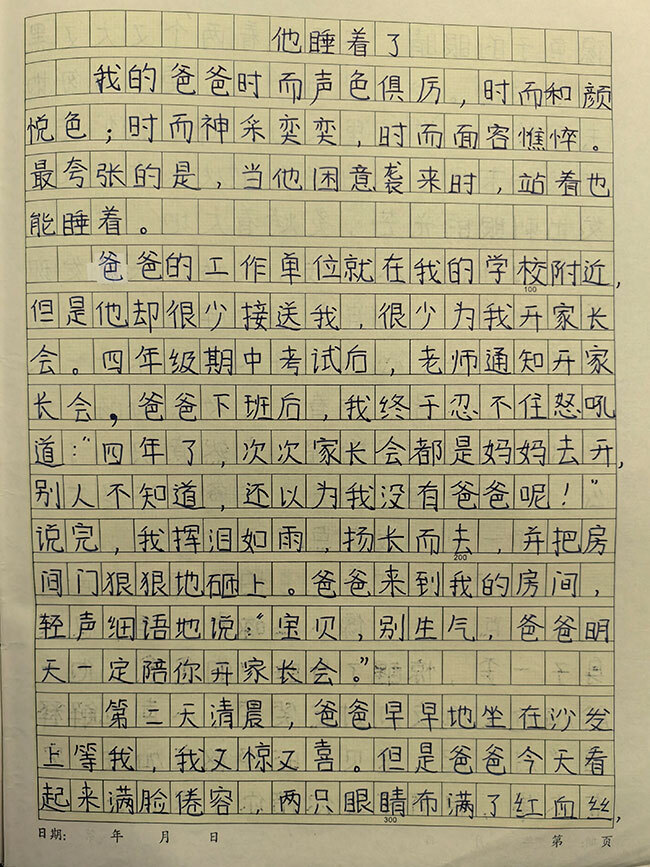 他睡着了
我的爸爸时而声色俱厉，时而和颜
悦色；时而神采奕奕，时而面容憔悴。
最夸张的是，当他困意袭来时，站着也
能睡着。
爸爸的工作单位就在我的学校附近，
100
但是他却很少接送我，很少为我开家长
会。四年级期中考试后，老师通知开家
长会，爸爸下班后，我终于忍不住怒吼
道：“四年了，次次家长会都是妈妈去开，
别人不知道，还以为我没有爸爸呢！”
说完，我挥泪如雨，扬长而去，并把房
200
间门狠狠地砸上。爸爸来到我的房间，
轻声细语地说：“宝贝，别生气，爸爸明
天一定陪你开家长会。”
第二天清晨，爸爸早早地坐在沙发
上等我，我又惊又喜。但是爸爸今天看
起来满脸倦容，两只眼睛布满了红血丝，
300
日期： 年 月 日 第 页